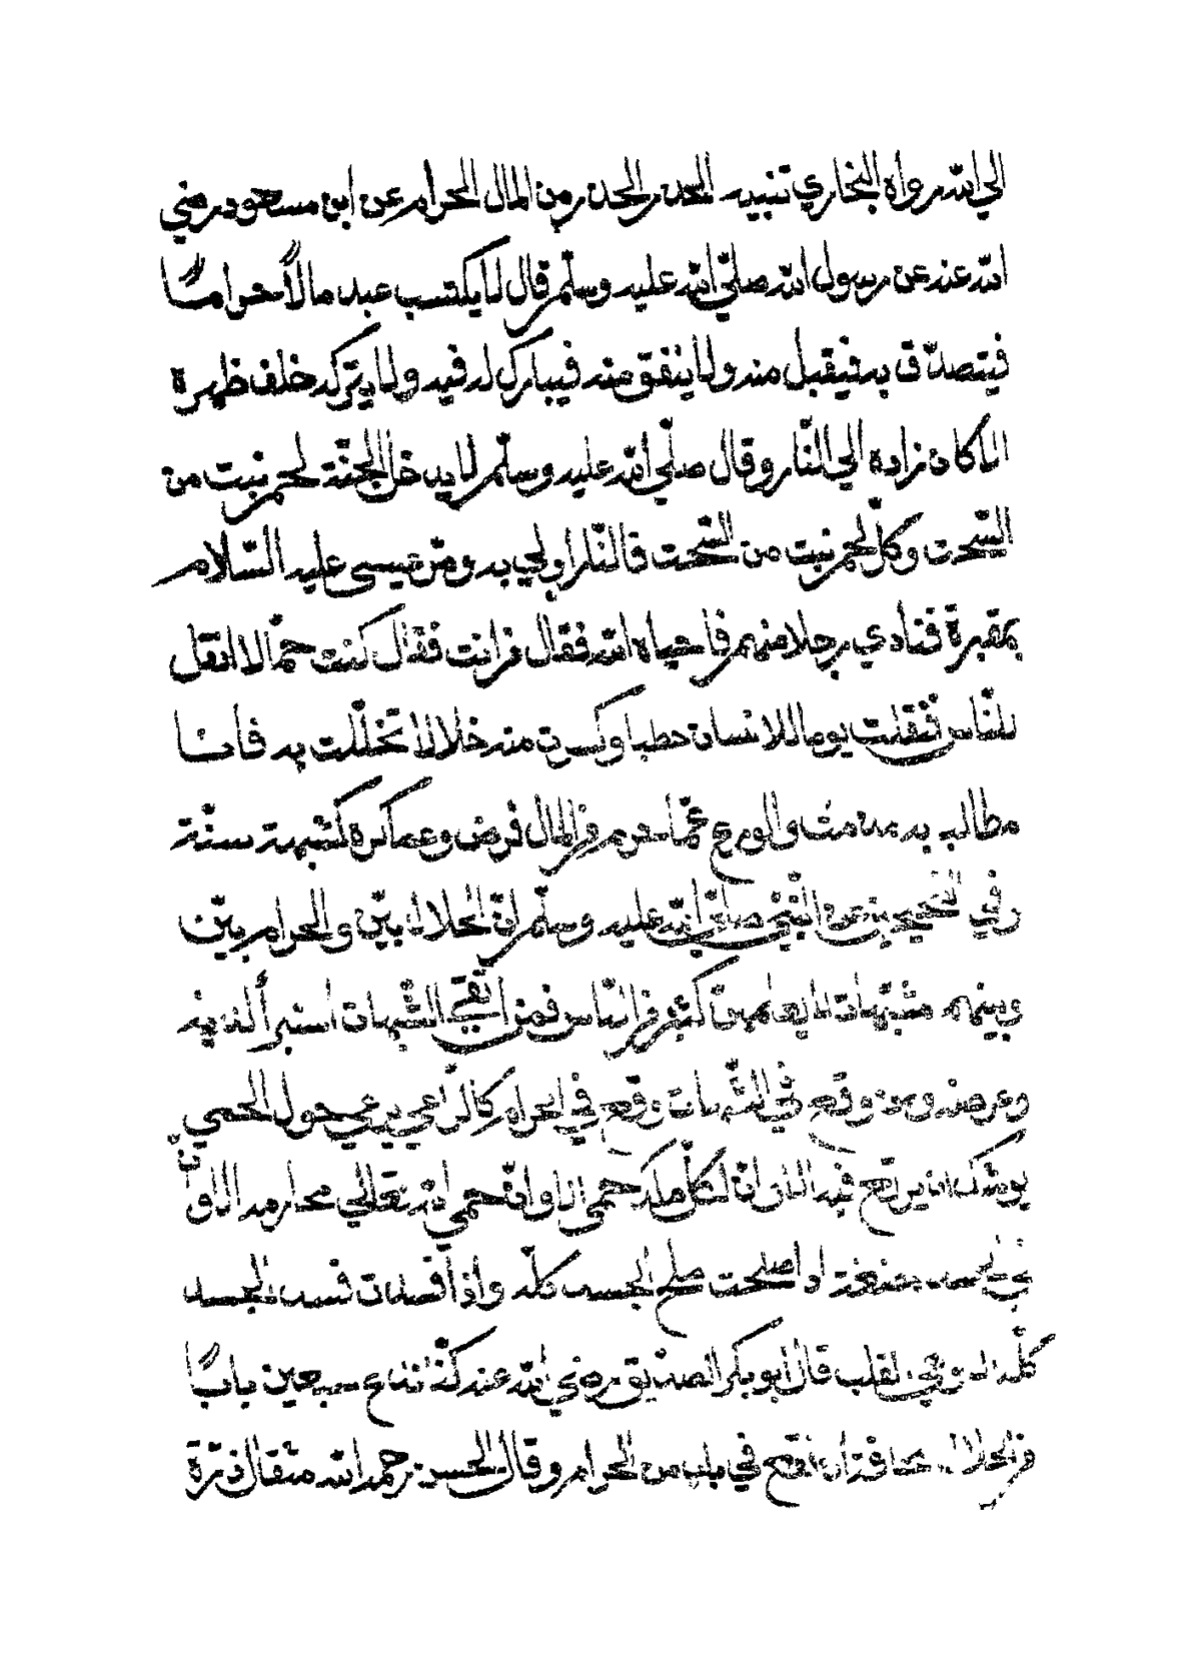 الي الله رواه البخاري تنبيه الحذر الحذر من المال الحرام عن ابن مسعود رضي
الله عنه عن رسول الله صلّي الله عليه وسلّم قال لا يكتسب عبد مالاً حراماً
فيتصدّق به فيقبل منه ولا ينفق منه فيبارك له فيه ولا يتركه خلف ظهره
الا كان زاده الي النّار وقال صلّي الله عليه وسلّم لا يدخل الجنّة لحم نبت من
السّحت وكلّ لحم نبت من السّحت فالنّار اولي به ومرّ عيسى عليه السّلام
بمقبرة فنادي رجلا منهم فاحياه الله فقال من انت فقال كنت حمّالا انقل
للنّاس فنقلت يوما لانسان حطبا وكسرت منه خلالا تخلّلت به فانا
مطالب به منذ مت والورع عمّا حرم من المال فرض وعما كره كشبهة سنّة
وفي الصّحيحين عن النّبيّ صلّي الله عليه وسلّم انّ الحلال بيّن والحرام بيّن
وبينهم مشبّهات لا يعلمهنّ كثير من النّاس فمن اتّقي الشّبهات استبرأ لدينه
وعرضه ومن وقع في الشّبهات وقع في الحرام كالرّاعي يرعي حول الحمي
يوشك ان يرتع فيه الا وان انّ لكلّ ملك حمي الا وانّ حمي الله تعالي محارمه الا وانّ
في الجسد مضغة اذا صلحت صلح الجسد كلّه واذا فسدت فسد الجسد
كلّه الا وهي القلب قال ابو بكر الصدّيق رضي الله عنه كنّا ندع سبعين باباً
من الحلال مخافة ان نقع في باب من الحرام وقال الحسن رحمه الله مثقال ذرّة